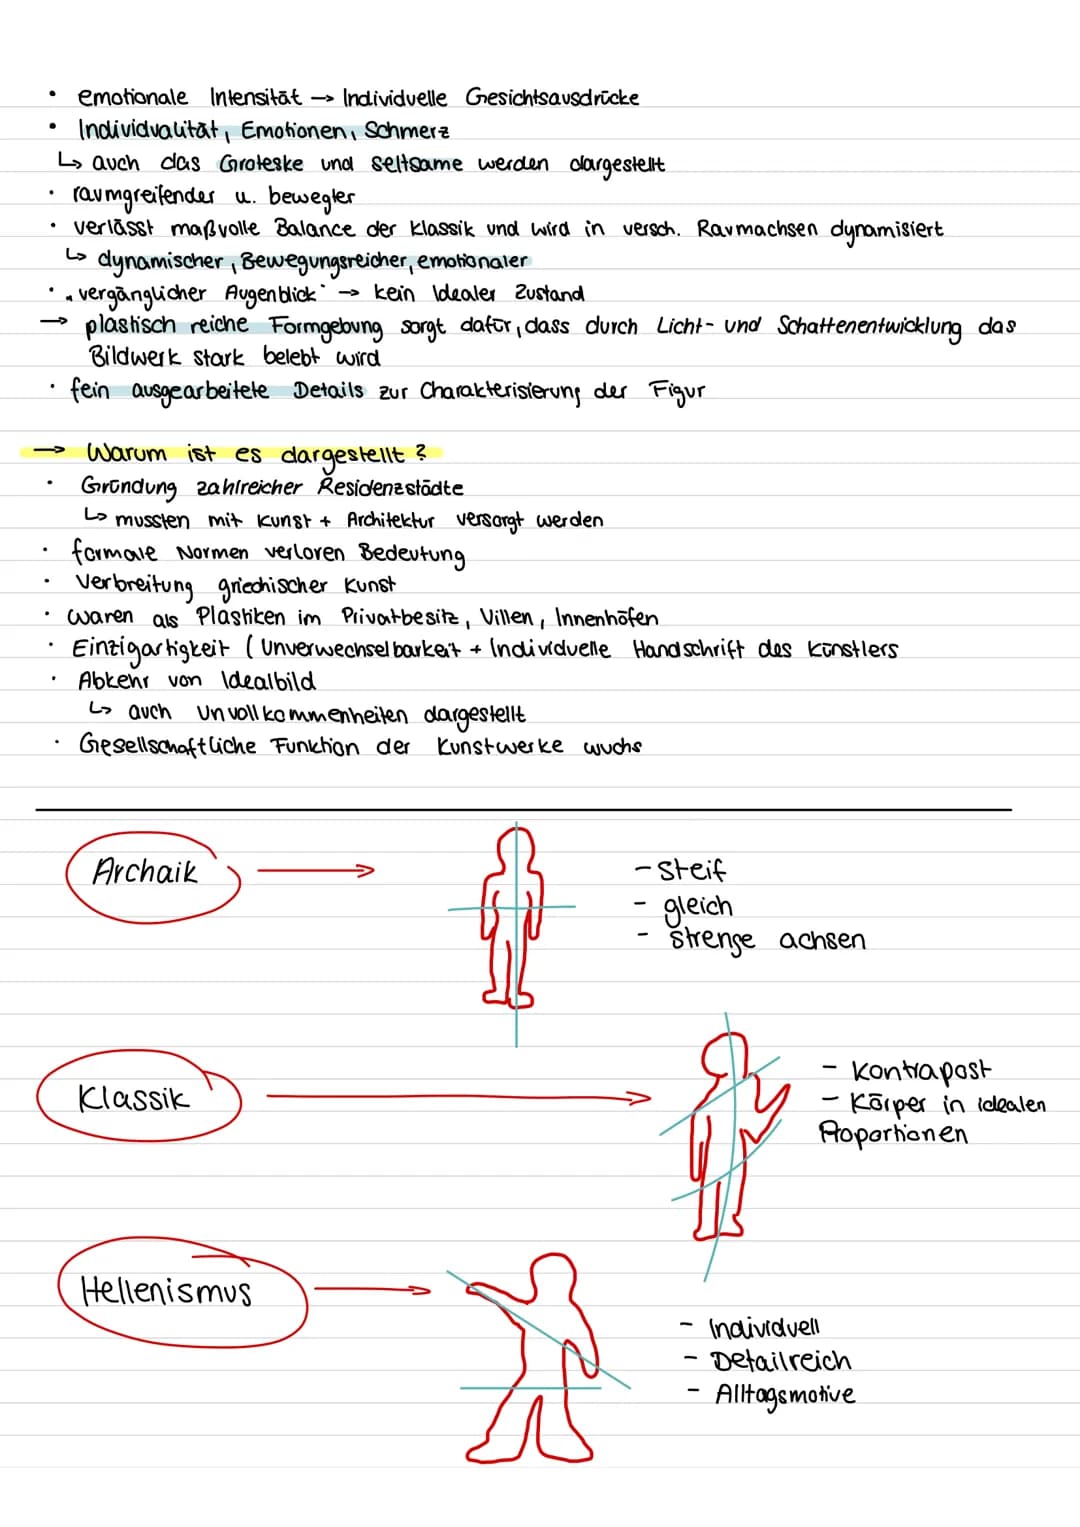 • emotionale Intensität → Individuelle Gesichtsausdrücke
• Individualität, Emotionen, Schmerz
↳ auch das Groteske und seltsame werden dargestellt
• raumgreifender u. bewegler
• verlässt maßvolle Balance der Klassik und wird in versch. Raumachsen dynamisiert
↳ dynamischer, Bewegungsreicher, emotionaler
• "vergänglicher Augenblick" → kein Idealer Zustand
→ plastisch reiche Formgebung sorgt dafür, dass durch Licht- und Schattenentwicklung das
Bildwerk stark belebt wird
• fein ausgearbeitete Details zur Charakterisierung der Figur
→ Warum ist es dargestellt?
• Gründung zahlreicher Residenzstädte
↳ mussten mit Kunst + Architektur versorgt werden
• formale Normen verloren Bedeutung
• Verbreitung griechischer Kunst
• waren als Plastiken im Privatbesitz, Villen, Innenhöfen
• Einzigartigkeit (Unverwechselbarkeit + Individuelle Handschrift des Künstlers
• Abkehr von Idealbild
↳ auch Unvollkommenheiten dargestellt
• Gesellschaftliche Funktion der Kunstwerke wuchs
Archaik
- steif
- gleich
- strenge achsen
Klassik
- Kontrapost
- Körper in idealen
Proportionen
Hellenismus
- Individuell
- Detailreich
- Alltagsmotive